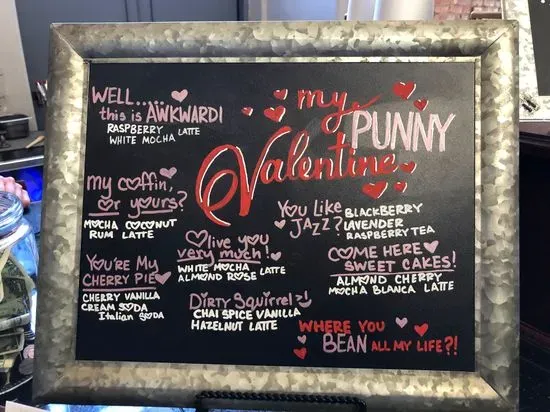 my PUNNY
Valentine
WELL....
this is AWKWARD!
RASPBERRY LATTE
WHITE MOCHA
my coffin,
or yours?
MOCHA COCONUT
RUM LATTE
YOU'RE MY
CHERRY PIE
CHERRY VANILLA
CREAM SODA
Italian SODA
Olive you
very much!
WHITE MOCHA
ALMOND ROSE LATTE
DIRTY SQUIRREL>!
CHAI SPICE VANILLA
HAZELNUT LATTE
YOU LIKE
JAZZ?
BLACKBERRY
LAVENDER
RASPBERRY TEA
COME HERE
SWEET CAKES!
ALMOND CHERRY
MOCHA BLANCA LATTE
WHERE YOU
BEAN ALL MY LIFE?!